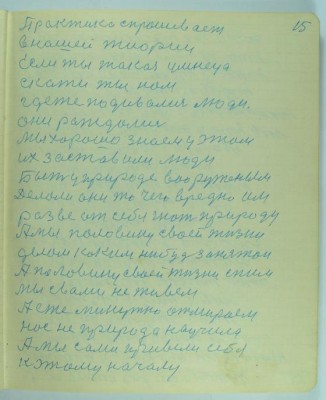 15
Практика спрашивает
в нашей тиории
Если ты такая умнеца
скажи ты нам
где те подивались люди.
они раждались
мы хорошо знаем у этом
их заставили люди
Быть у природе вооруженым
Делали они то чего вредно им
разве от себя тот природу
А мы половину своей жизни
делом каким нибудь занятои
А половину своей жизни спим
мы с вами не живем
А сте минутно отмираем
нас не природа научила
А мы сами привели себя
к этому началу